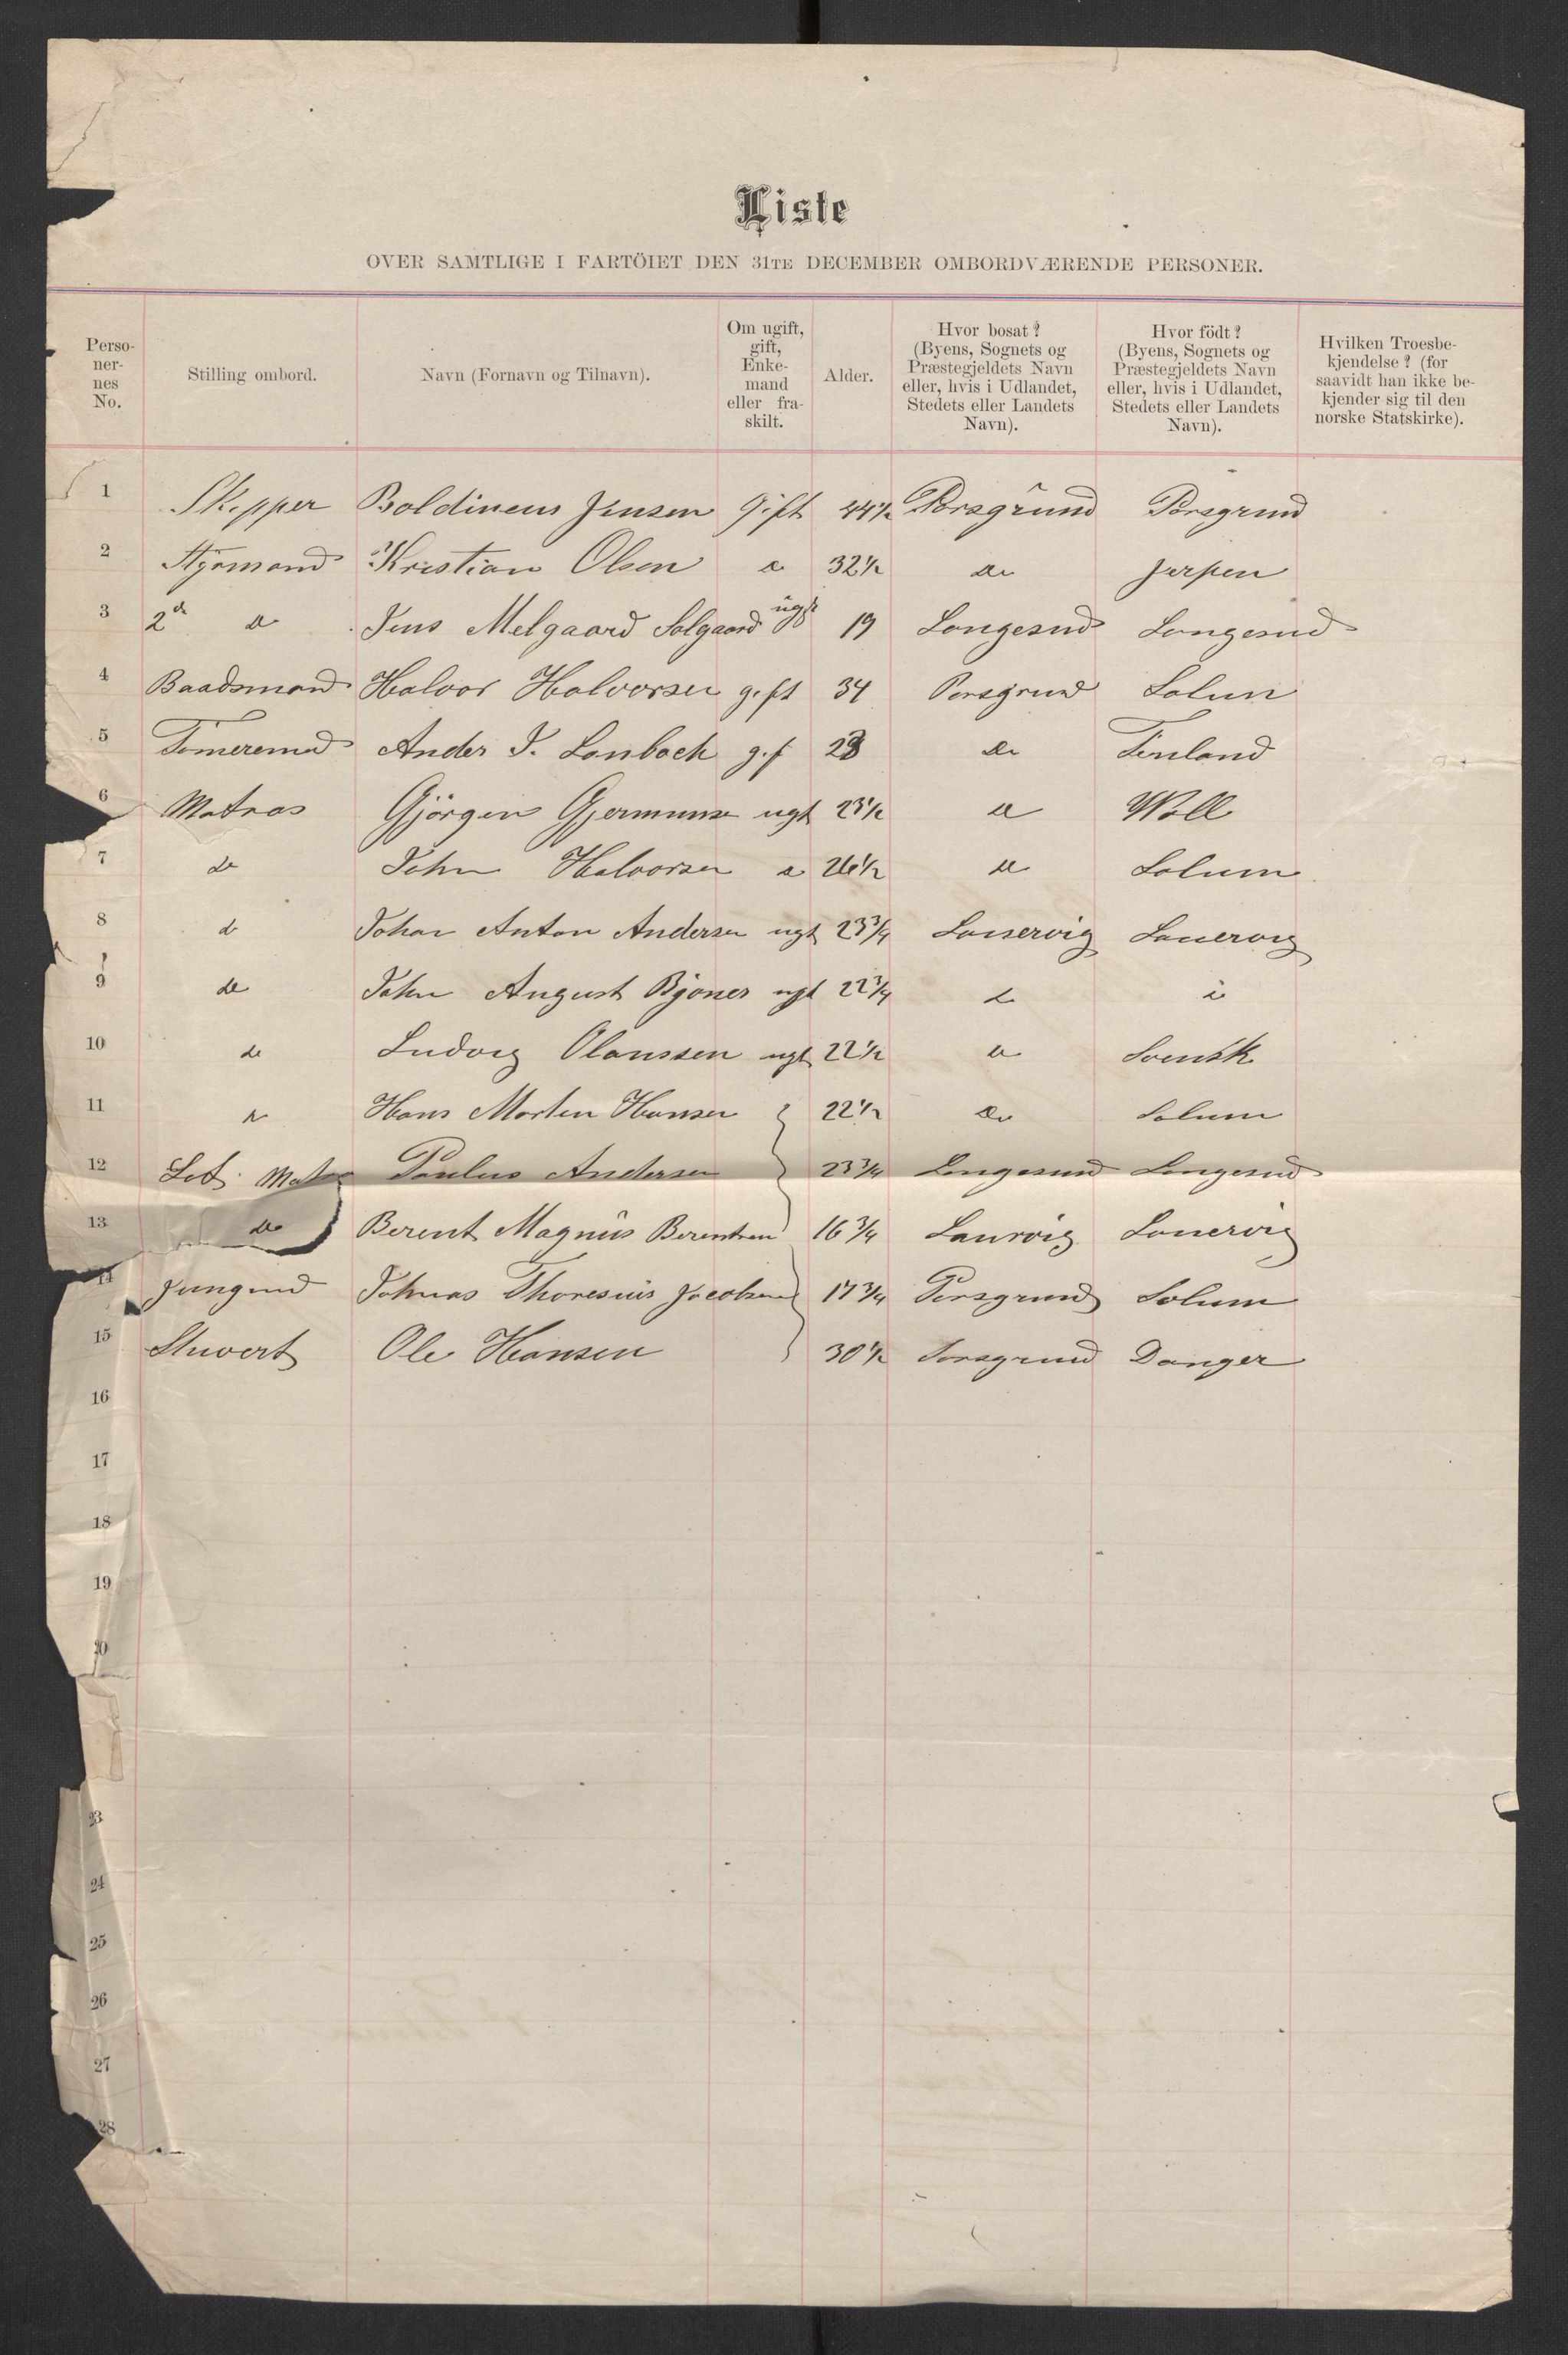 Liste
OVER SAMTLIGE I FARTÖIET DEN 31TE DECEMBER OMBORDVÆRENDE PERSONER.
Perso-
ner-
nes
No.
Stilling ombord.
Navn (Fornavn og Tilnavn).
Om ugift,
gift,
Enke-
mand
eller fra-
skilt.
Alder.
Hvor bosat?
(Byens, Sognets og
Præstegjeldets Navn
eller, hvis i Udlandet,
Stedets eller Landets
Navn).
Hvor födt?
(Byens, Sognets og
Præstegjeldets Navn
eller, hvis i Udlandet,
Stedets eller Landets
Navn).
Hvilken Troesbe-
kjendelse? (for
saavidt han ikke be-
kjender sig til den
norske Statskirke).
1 Skipper Boldineus Jensen Gift 44½ Porsgrund Porsgrund
2 Styrmand Kristian Olsen do 32½ do Jerpen
3 2d do Jens Melgaard Solgaard ugft 19 Langesund Langesund
4 Baadsmand Halvor Halvorsen gift 34 Porsgrund Solum
5 Tømeremand Ander J. Lonbach gif 28 do Finland
6 Matros Gjörgen Gjermunse ugt 23½ do Woll
7 do John Halvorsen do 26½ do Solum
8 do Johan Anton Andersen ugt 23¾ Laurvig Lauervig
9 do John August Bjones ugt 22¾ do do
10 do Ludvig Olaussen ugt 22½ do Svensk
11 do Hans Morten Hansen 22½ do Solum
12 Let. Matros Paulus Andersen 23¾ Langesund Langesund
13 do Berent Magnus Berentsen 16¾ Laurvig Lauervig
14 Jungmd Johnas Thoresius Jacobsen 17¾ Porsgrund Solum
15 Stuvert Ole Hansen 30½ Porsgrund Danger
16
17
18
19
20
23
24
25
26
27
28